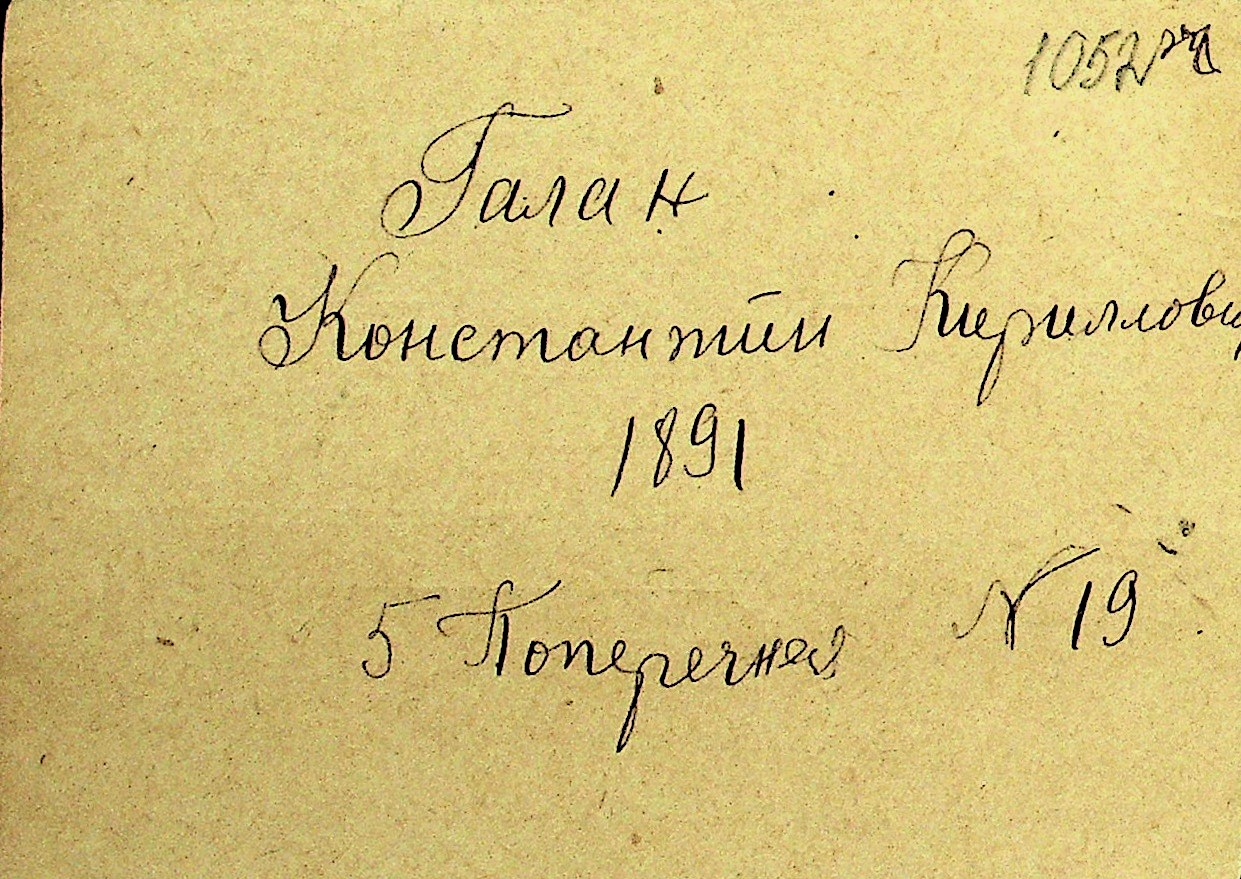 1052
Галан
Константин Кириллови
1891
5 Поперечная N 19